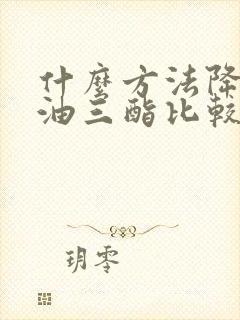 什麼方法降
油三酯比較
玥零